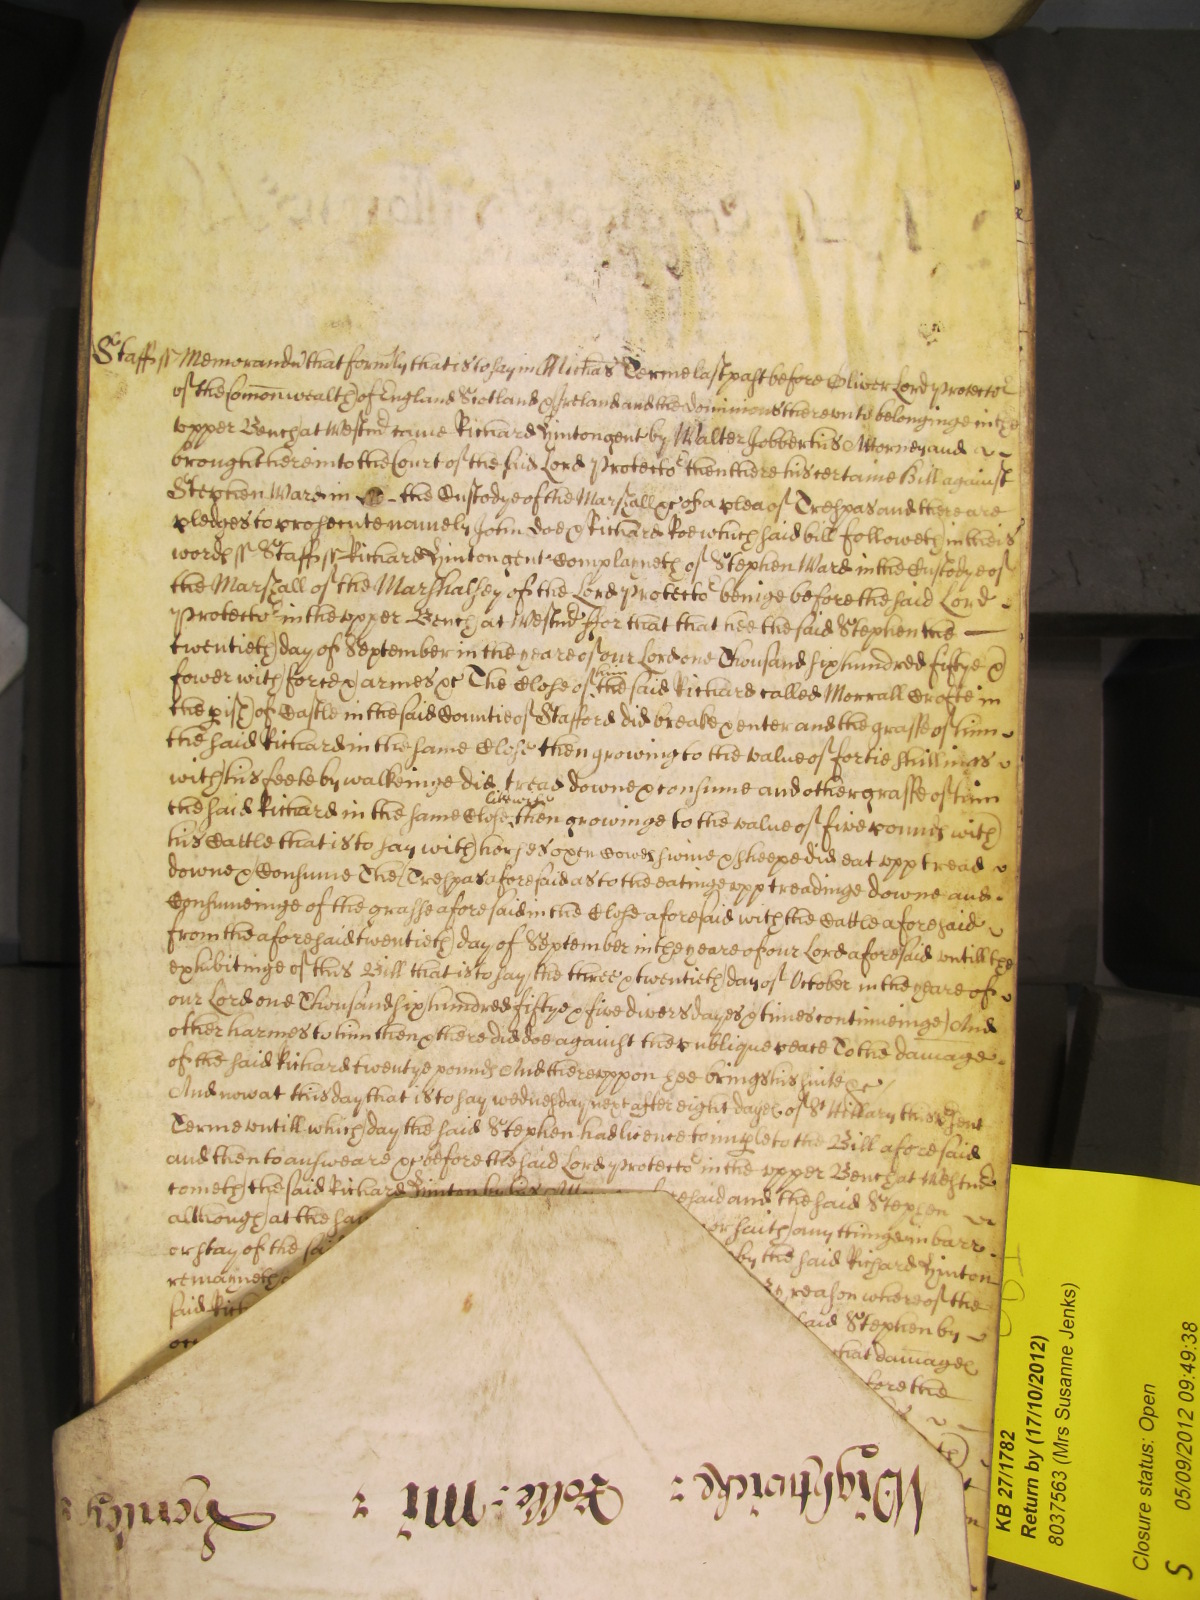 Staff ss Memorandu' that form'ly that is to say in Michas Terme last past before Oliver Lord Protector
of the Com̄onwealth of England Scotland & Ireland and the dominions thereunto belonginge in the
upper Bench at Westm' came Richard Hinton gent by Walter Jobber his Attorney and
brought here into the Court of the said Lord Protector then there his certaine Bill against
Stephen Ward in the Custodye of the Marshall &c of a plea of Trespas and there are
pledges to prosecute namely John Doe & Richard Roe which said bill followeth in theis
words ss Staff ss Richard Hinton gent Complayneth of Stephen Ward in the Custodye of
the Marshall of the Marshalsey of the Lord Protector beinge before the said Lord
Protector in the upper Bench at Westm' For that that hee the said Stephen the
twentieth day of September in the yeare of our Lord one Thousand six hundred fiftye &
fower with force & armes &c The Close of him the said Richard called Morrall Crofte in
the p'ish of Castle in the said Countie of Stafford did breake & enter and the grasse of him
the said Richard in the same Close then growing to the value of fortie shillings
with his feete by walkeinge did tread downe & consume and other grasse of him
the said Richard in the same Close likewise then growinge to the value of five pounds with
his Cattle that is to say with horses oxen Cowes swine & sheepe did eat upp tread
downe & Consume The Trespas aforesaid as to the eatinge upp treadinge downe and
Consumeinge of the grasse aforesaid in the Close aforesaid with the Cattle aforesaid
from the aforesaid twentieth day of September in the yeare of our Lord aforesaid untill the
exhibitinge of this Bill that is to say the three & twentieth day of October in the yeare of
our Lord one Thousand six hundred fiftye & five divers dayes & times continueinge And
other harmes to him then & there did doe against the publique peace To the damage
of the said Richard twentye pounds And thereuppon hee brings his suite &c
And now at this day that is to say wednesday next after eight dayes of St Hillary this same
Terme untill which day the said Stephen had licence to imparle to the Bill aforesaid
and then to answeare &c before the said Lord Protector in the upper Bench at Westm'
cometh the said Richard Hinton by his Att aforesaid and the said Stephen
although at the sa or saith any thinge in barre
or stay of the sai by the said Richard Hinton
remayneth by reason whereof the
said Rich said Stephen by
that damages
before the
Wightwicke : Rolle : Mi : Henley :
KB 27/1782
Return by (17/10/2012)
8037563 (Mrs Susanne Jenks)
Closure status: Open
S 05/09/2012 09:49:38